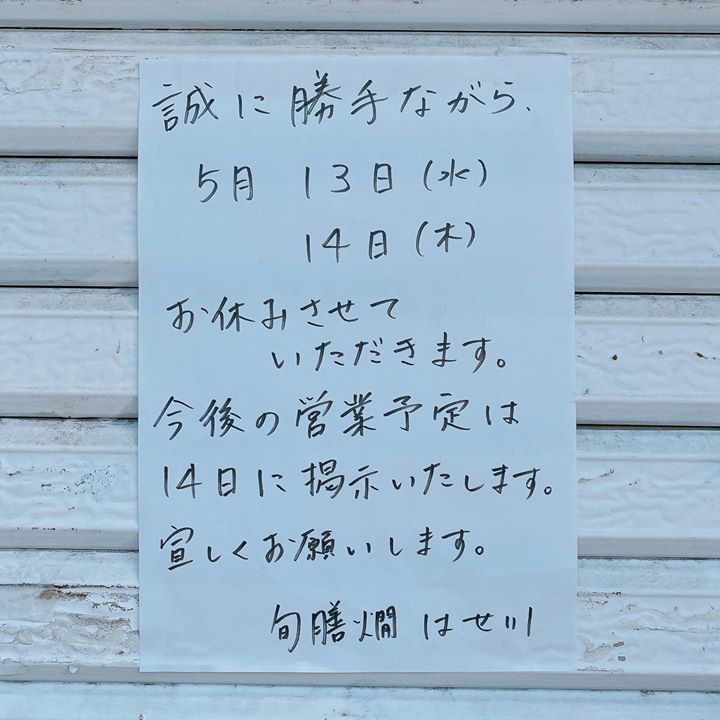 誠に勝手ながら、
5月 13日(水)
14日(木)
お休みさせて
いただきます。
今後の営業予定は
14日に掲示いたします。
宜しくお願いします。
旬膳燗 はせ川